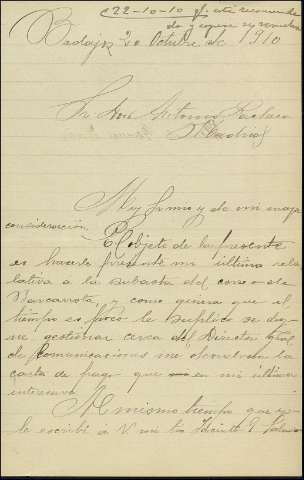 C 22-10-10 qe. está recomenda
do y espere se resuelva
Badajoz 20 Octubre de 1910
Sr Don Antonio
Madrid
Muy Sr mio y de mi mayor
consideración. El objeto de la presente
es hacerle presente mi última re
lativa a la subasta del correo de
Barcarrota, y como quiera que el
tiempo es poco le suplico se dig
ne gestionar cerca del Director Gral
de Comunicaciones me devuelvan la
carta de pago que en mi última
interesaba.
Al mismo tiempo que yo
le escribí a V mi tio Jacinto